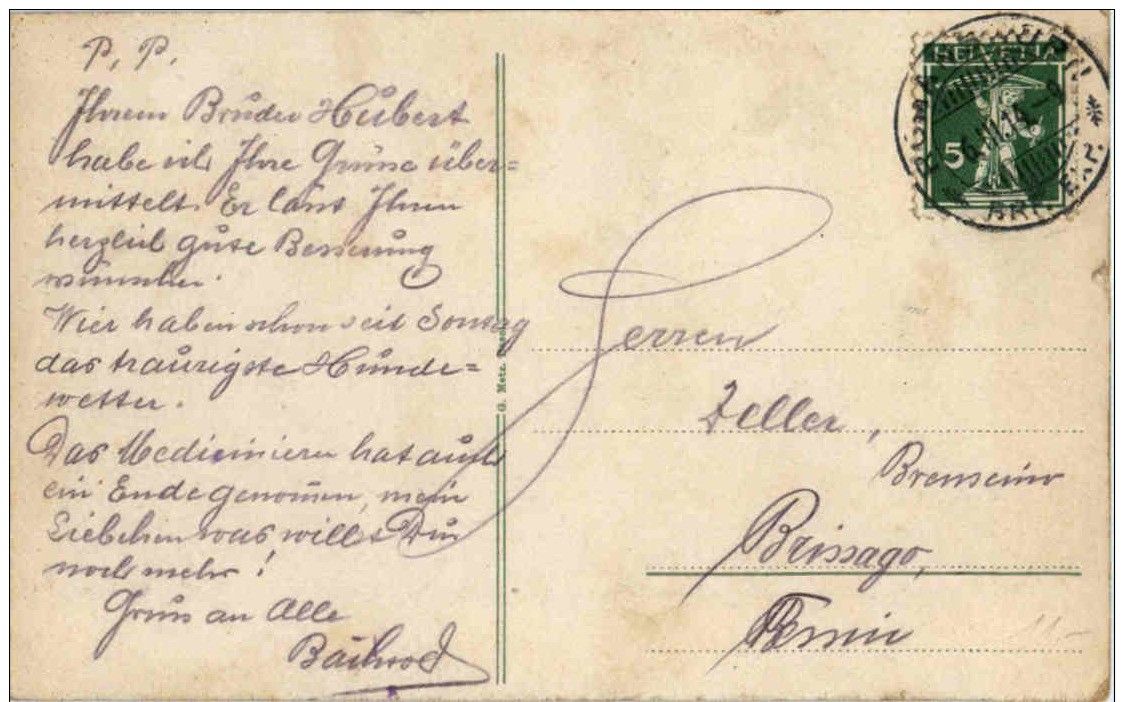 P. P.
Ihrem Bruder Hubert
habe ich Ihre Grüsse über=
mittelt. Er lässt Ihnen
herzlich gute Besserung
wünschen.
Wier haben schon seit Sontag
das traurigste Hunde=
wetter.
Das Medicinieren hat auch
ein Ende genomen, mein
Liebchen was willst Du
noch mehr!
Gruss an Alle
HELVETIA
5
Herren
Zeller,
Brenscino
Brissago,
Tessin
G. Metz,
11.-